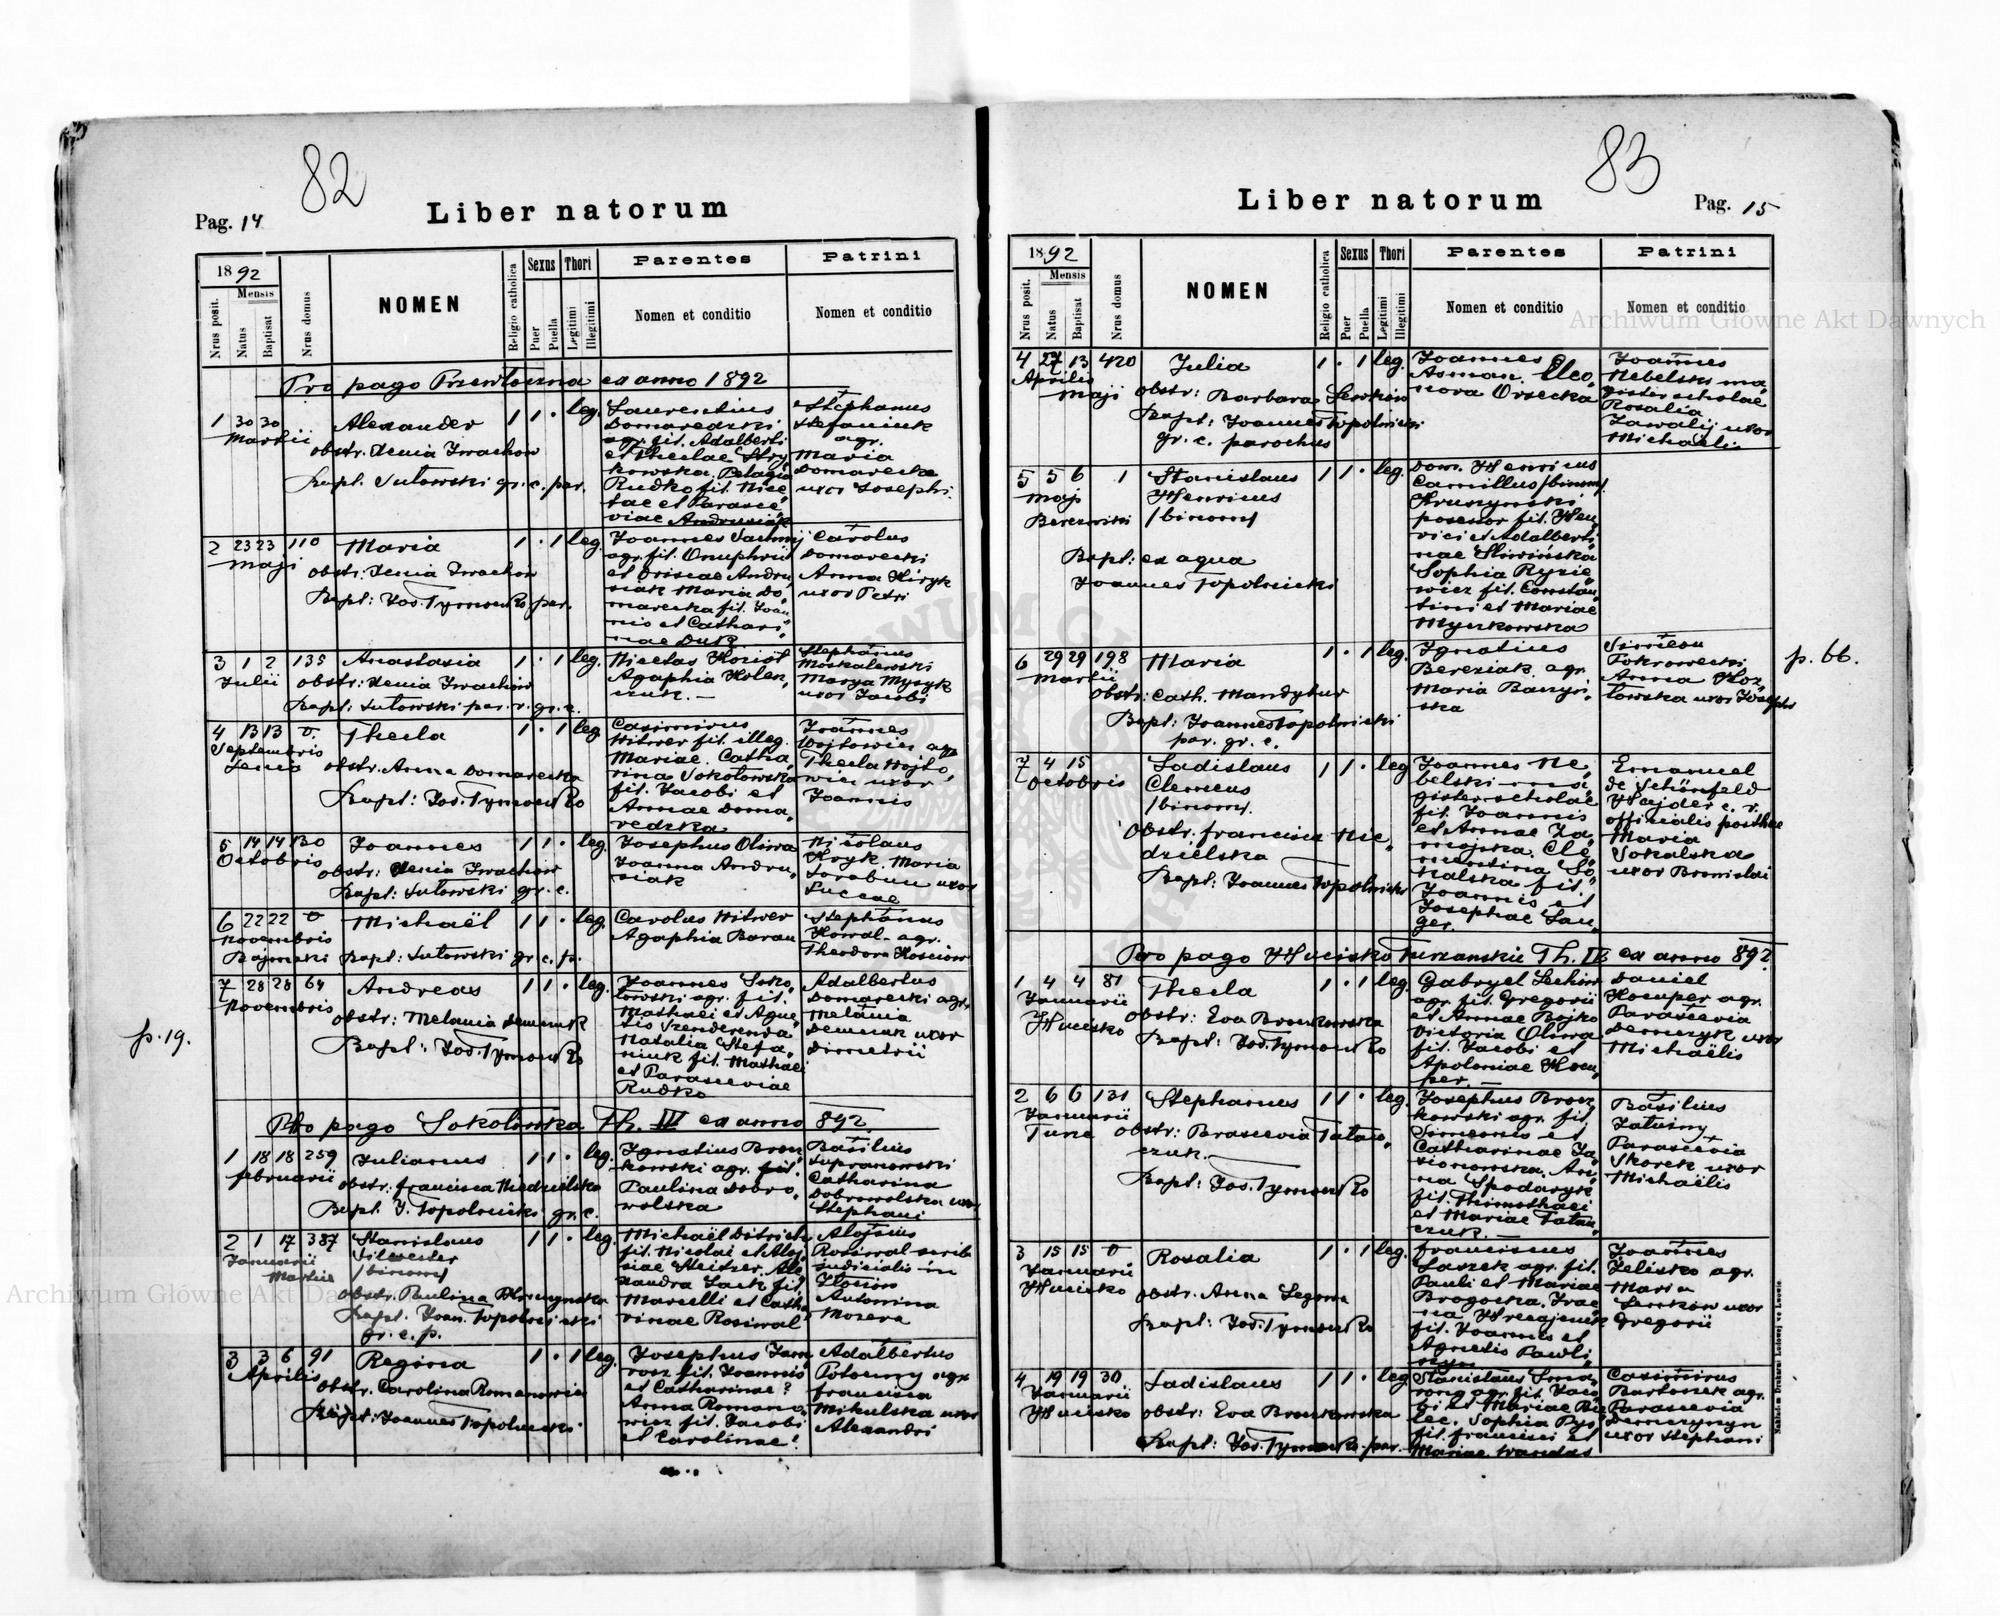 82
Pag. 14
Liber natorum
18 92
Mensis
Nrus posit.
Natus
Baptisat
Nrus domus
NOMEN
Religio catholica
Sexus
Puer
Puella
Thori
Legitimi
Illegitimi
Parentes
Nomen et conditio
Patrini
Nomen et conditio
Pro pago Przewłoczna ex anno 1892
1 30 30 Martii
Alexander
obstr. Xenia Iwachów
Bapt. Lutowski gr. c. par.
1 1 · leg.
Laurentius
Domaredzki
agr. fil. Adalberti
et Theclae Stry
kowska, Pelagia
Rudko fil. Nice
tae et Parasce
viae Andrusiak
Stephanus
Stefaniuk
agr.
Maria
Domarecka
uxor Josephi
2 23 23 110
Maji
Maria
obstr. Xenia Iwachów
Bapt: Jos. Tymowko par.
1 · 1 leg.
agr. fil. Onuphrii
et Mariae Andru
siak Maria Do,
marecka fil. Joan
nis et Cathari
nae Duk
Carolus
Domarecki
Anna Hiryk
uxor Petri
3 1 2 135
Julii
Anastasia
obstr: Xenia Iwachów
Bapt: Lutowski par. r. gr. c.
1 · 1 leg.
Nicetas Kozioł
Agaphia Holen,
czuk. —
Stephanus
Moskalewski
Marya Myszyk
uxor Jacobi
4 13 13
Septembris
Thecla
obstr. Anna Domarecka
Bapt: Jos. Tymowko
1 · 1 leg.
Casimirus
Hitwer fil. illeg.
Mariae. Catha,
rina Sokołowska
fil. Jacobi et
Annae Doma,
redzka
Joannes
Wojtowicz agr
Thecla Wojto,
wicz uxor
Joannis
5 14 14 130
Octobris
Joannes
obstr: Xenia Iwachów
Bapt: Lutowski gr. c.
1 1 · leg.
Josephus Oliwa
Joanna Andru,
siak
Nicolaus
Hryk. Maria
uxor
Lucae
6 22 22
Novembris
Michaël
Bapt: Lutowski gr. c. p.
1 1 · leg.
Carolus Hitwer
Agaphia Baran
Stephanus
Kowal agr.
Theodora Kosciow
p. 19.
7 28 28 64
Novembris
Andreas
obstr: Melania Demczuk
Bapt: Jos. Tymowko
1 1 · leg.
Joannes Soko,
łowski agr. fil.
Mathaei et Agne
tis Szenderewda
Natalia Stefa,
niuk fil. Mathaei
et Parasceviae
Rudko
Adalbertus
Domarecki agr.
Melania
Demczuk uxor
Dimetrii
Pro pago Sokołówka Th. IV ex anno 892.
1 18 18 259
februarii
Julianus
obstr: francisca Niedzielska
Bapt. J. Topolnicki gr. c.
1 1 · leg.
Ignatius Brosz
kowski agr. fil.
Paulina Dobro,
wolska
Basilius
Supranowski
Catharina
Dobrowolska uxor
Stephani
2 1 17 387
Januarii
Martii
Stanislaus
Silvester
/binom/
obstr. Paulina Hruszynska
Bapt. Joan. Topolnicki
gr. c. p.
1 1 · leg.
Michaël Ditrich
fil. Nicolai et Aloj
siae Steitzer. Ale
xandra Lack fil.
Marcelli et Catha
rinae Rosiwal
Alojsius
Rosiwal scriba
judicialis in
Złoczów
Antonina
Mozera
3 3 6 91
Aprilis
Regina
obstr. Carolina Romanowicz
Bapt: Joannes Topolnicki
1 · 1 leg.
Josephus Jaw,
rosz fil. Joannis
et Catharinae ?
Anna Romano,
wicz fil. Jacobi
et Carolinae!
Adalbertus
Potoczny agr
francisca
Mikulska uxor
Alexandri
83
Liber natorum
Pag. 15
18 92
Mensis
Nrus posit.
Natus
Baptisat
Nrus domus
NOMEN
Religio catholica
Sexus
Puer
Puella
Thori
Legitimi
Illegitimi
Parentes
Nomen et conditio
Patrini
Nomen et conditio
4 27 13 420
Aprilis
Maji
Julia
obstr: Barbara Senków
Bapt. Joannes Topolnicki
gr. c. parochus
1 · 1 leg.
Joannes
Asman. Eleo,
nora Orsecka
Joannes
Nebelski ma,
gister scholae
Rosalia
Zawalij uxor
Michaeli
5 5 6 1
Maji
Stanislaus
Henricus
/binom/
Bapt: ex aqua
Joannes Topolnicki
1 1 · leg.
Dom. Henricus
Camillus /binom/
Hruszynski
possesor fil. Hen,
rici et Adalberti,
nae Sliwińska
Sophia Ryzie
wicz fil. Constan,
tini et Mariae
Myszkowska
p. 66.
6 29 29 198
Martii
Maria
obstr: Cath. Mandybur
Bapt: Joannes Topolnicki
par. gr. c.
1 · 1 leg.
Ignatius
Bereziak agr.
Maria Baczyń,
ska
Simeon
Pokrowecki
Anna Koz,
łowska uxor Josephi
7 4 15
Octobris
Ladislaus
Clemens
/binom/.
Obstr. francisca Nie,
dzielska
Bapt: Joannes Topolnicki
1 1 · leg
Joannes Ne,
belski ma,
gister scholae
fil. Joannis
et Annae Za,
mojska. Cle,
mentina So,
kalska fil.
Joannis et
Josephae Lan,
ger.
Emanuel
de Schönfeld
Hajder c. r.
officialis posthae
Maria
Sokalska
uxor Bronislai
Pro pago Hucisko Turzanskie Th. IV ex anno 892.
1 4 4 81
Januarii
Hucisko
Thecla
obstr: Eva Broszkowska
Bapt: Jos. Tymowko
1 · 1 leg.
Gabryel Lechów
agr. fil. Gregorii
et Annae Bojko
Victoria Oliwa
fil. Jacobi et
Apoloniae Kocu,
per. —
Daniel
Kocuper agr.
Parascevia
Demczyk uxor
Michaëlis
2 6 6 131
Januarii
Turze
Stephanus
obstr: Brascevia Tatar,
czuk.
Bapt: Jos. Tymowko
1 1 · leg.
Josephus Brosz,
kowski agr. fil.
Simeonis et
Catharinae Ja,
sionowska. An,
na Spodaryk
fil. Thimothaei
et Mariae Tatar,
czuk. —
Basilius
Zatuiny
Parascevia
Skorek uxor
Michaëlis
3 15 15
Januarii
Hucisko
Rosalia
obstr. Anna Legowa
Bapt: Jos. Tymowko
1 · 1 leg.
franciscus
Laszek agr. fil.
Pauli et Mariae
Brogocka. Irae
na Hrecajczuk
fil. Joannis et
Agnetis Pawli,
szyn
Joannes
Zelisko agr.
Maria
Senków uxor
Gregorii
4 19 19 30
Januarii
Hucisko
Ladislaus
obstr: Eva Broszkowska
Bapt: Jos. Tymowko par.
1 1 · leg.
Stanislaus Sma,
rong agr. fil. Jaco
bi et Mariae Bie
lec. Sophia Pys
fil. francisci et
Mariae Wandas
Casimirus
Bartoszek agr.
Parascevia
Demczyszyn
uxor Stephani
Archiwum Główne Akt Dawnych
Archiwum Główne Akt Dawnych